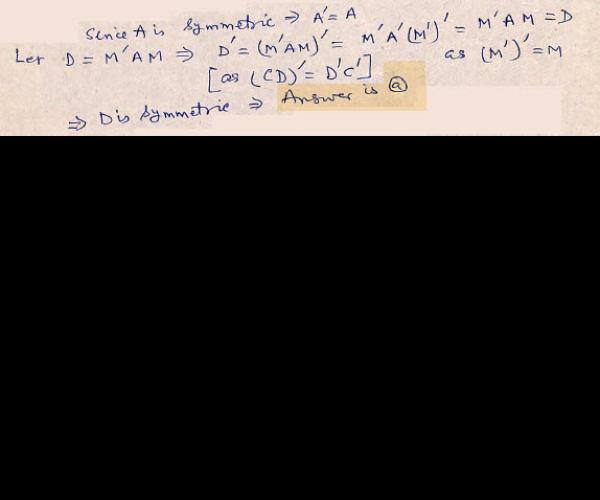 Sence A is symmetric ⇒ A' = A
Let D = M'AM ⇒ D' = (M'AM)' = M'A'(M')' = M'AM = D
[as (CD)' = D'C'] as (M')' = M
⇒ D is symmetric ⇒ Answer is ⓐ